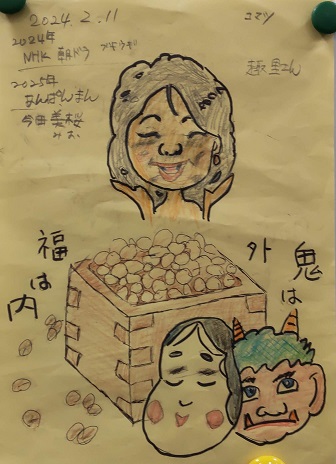 2024.2.11
コマツ
2024年
NHK 朝ドラ ブギウギ
趣里さん
2025年
あんぱんまん
今田美桜
みお
福は内
鬼は外